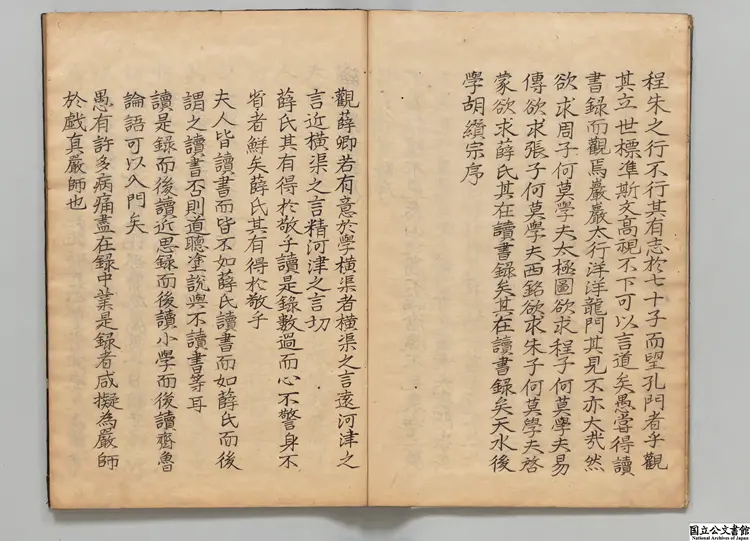 程朱之行不行其有志於七十子而望孔門者乎觀
其立世標準斯文高視不下可以言道矣愚嘗得讀
書錄而觀焉巖巖太行洋洋龍門其見不亦大哉然
欲求周子何莫學夫太極圖欲求程子何莫學夫易
傳欲求張子何莫學夫西銘欲求朱子何莫學夫啓
蒙欲求薛氏其在讀書錄矣其在讀書錄矣天水後
學胡纘宗序
觀薛卿若有意於學橫渠者橫渠之言遠河津之
言近橫渠之言精河津之言切
薛氏其有得於敬乎讀是錄數過而心不警身不
省者鮮矣薛氏其有得於敬乎
夫人皆讀書而皆不如薛氏讀書而如薛氏而後
謂之讀書否則道聽塗說與不讀書等耳
讀是錄而後讀近思錄而後讀小學而後讀齊魯
論語可以入門矣
愚有許多病痛盡在錄中業是錄者咸擬為嚴師
於戲真嚴師也
国立公文書館
National Archives of Japan